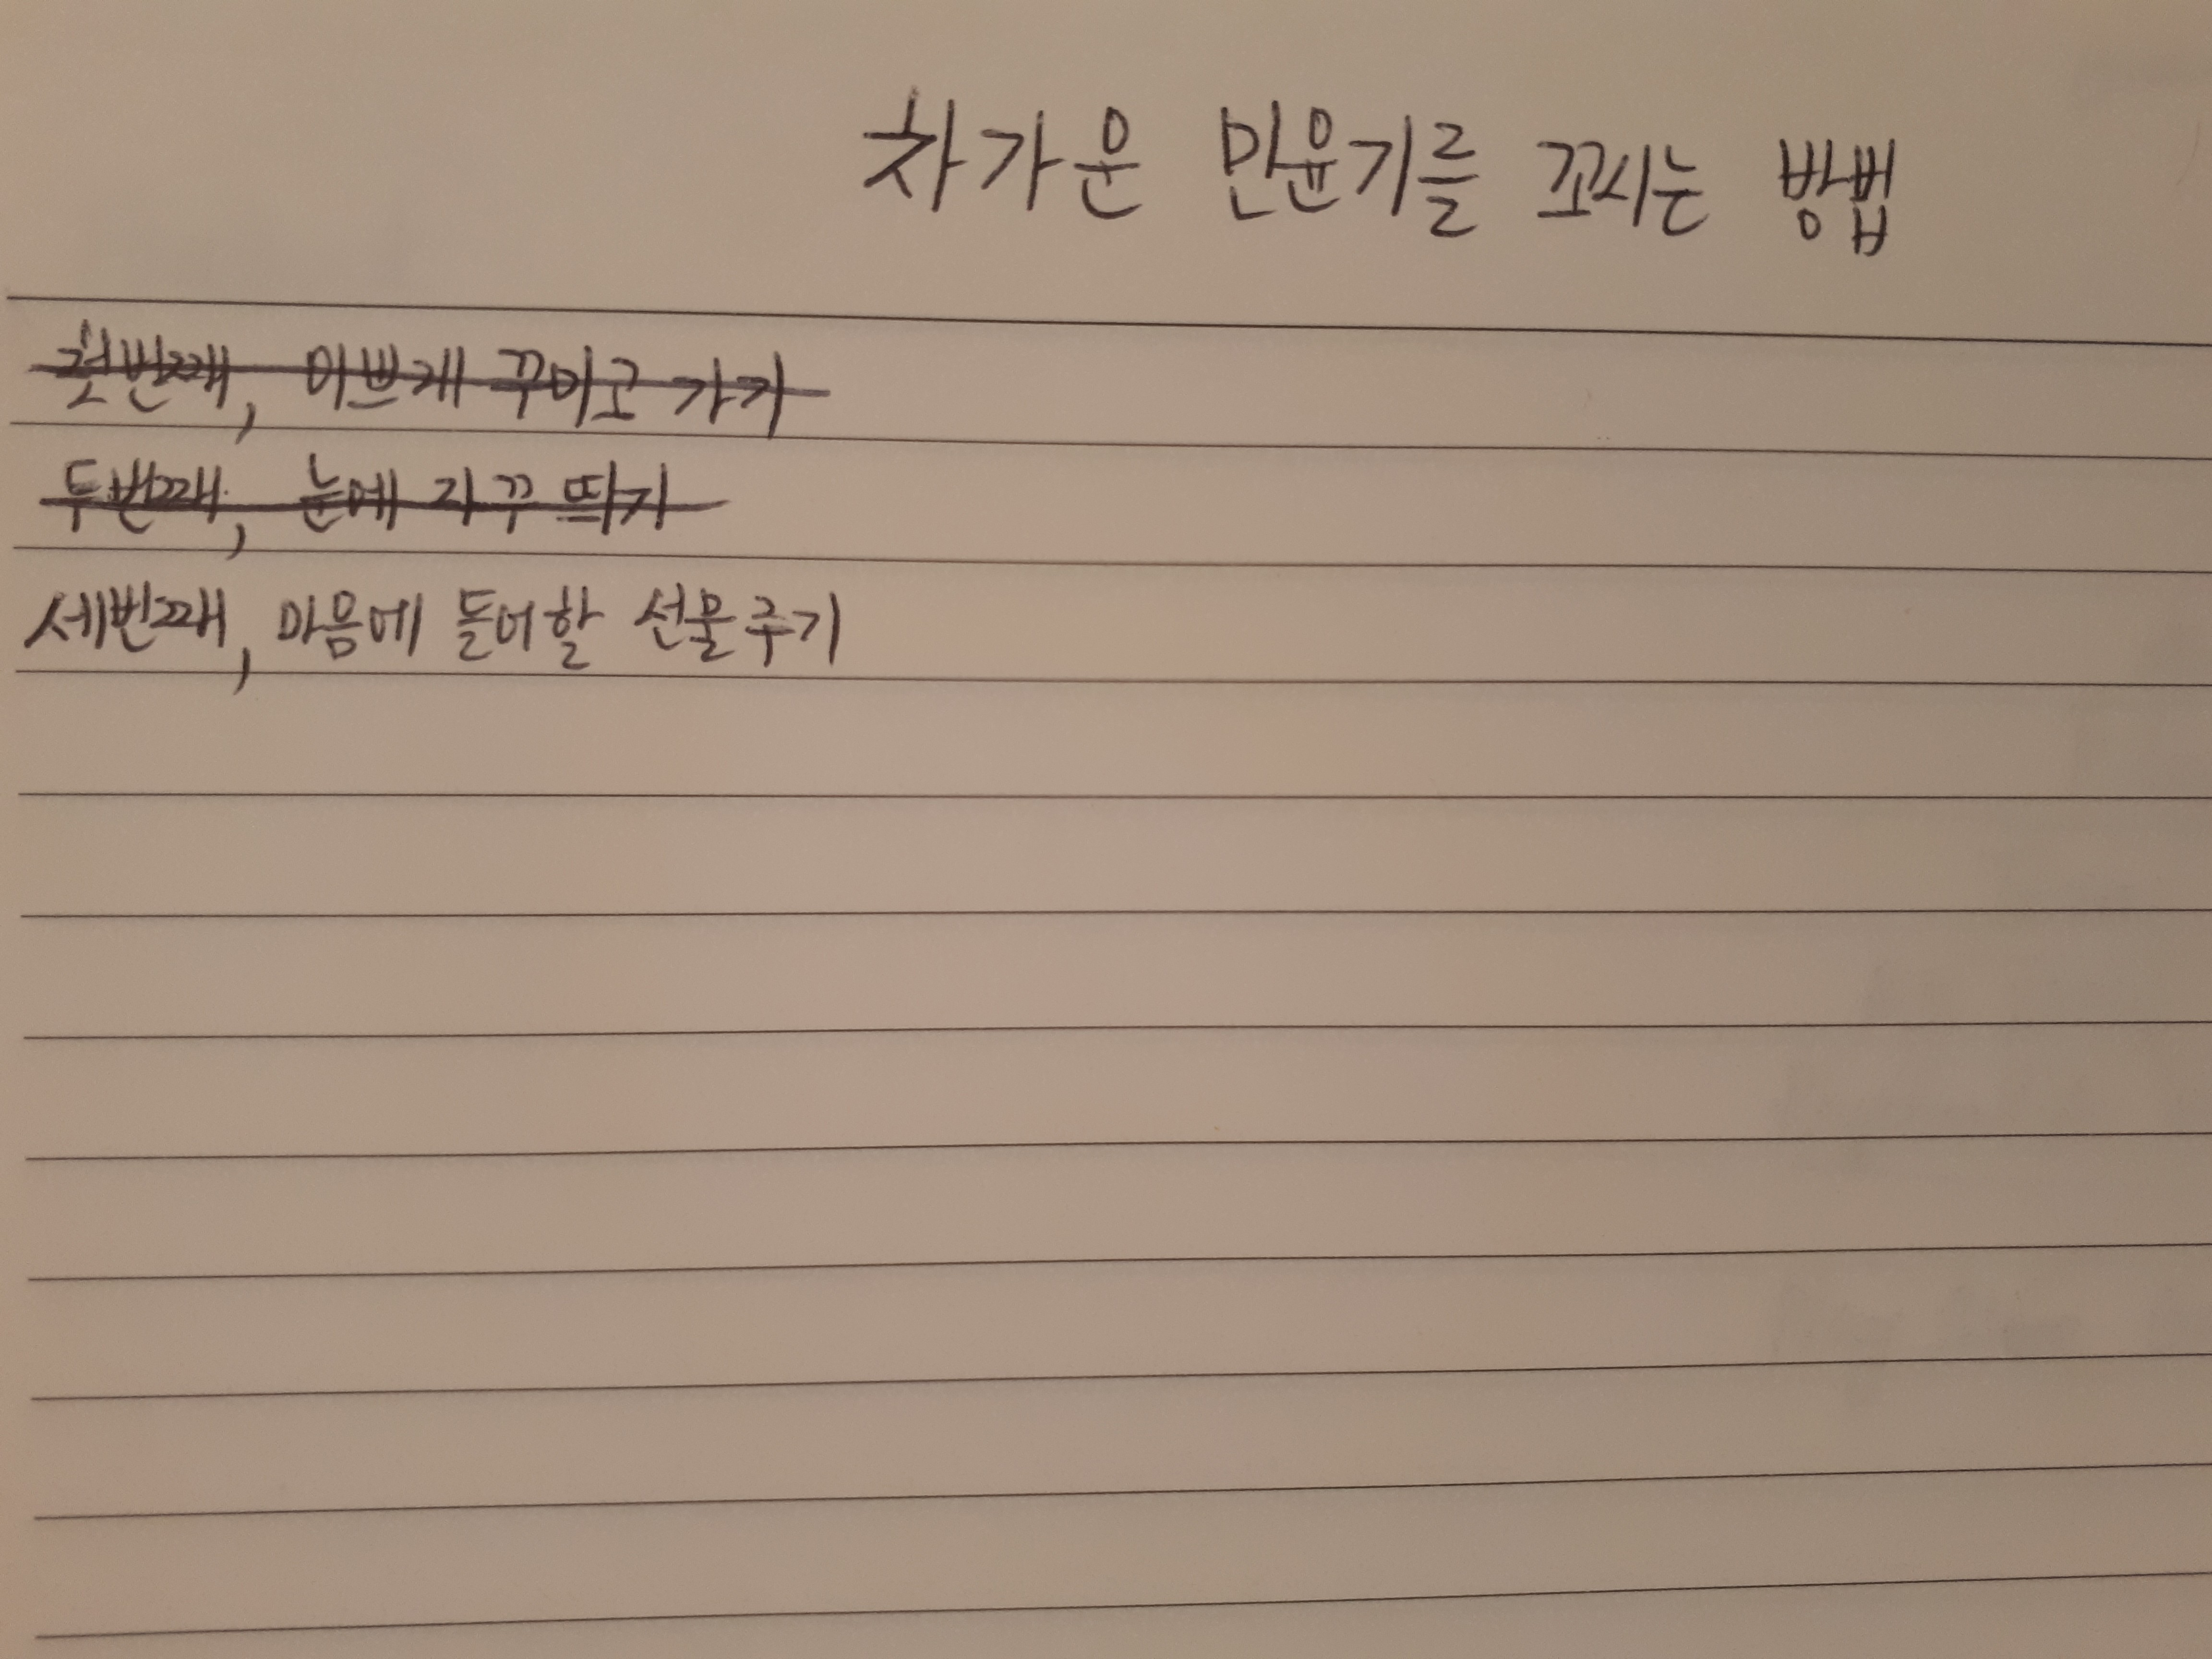 차가운 민윤기를 꼬시는 방법
첫번째, 이쁘게 꾸미고 가기
두번째, 눈에 자꾸 띄기
세번째, 마음에 들어할 선물주기